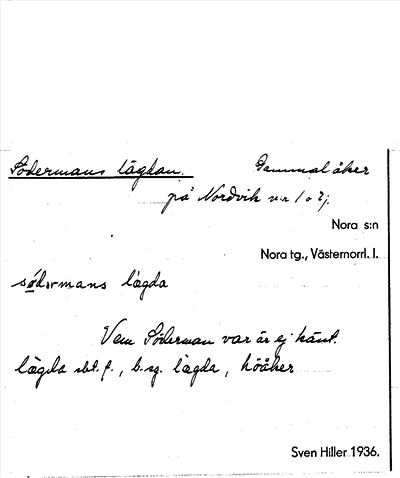 Södermans lägdan. Gammal åker
på Nordvik n:r 1 o 2j.
Nora s:n
Nora tg., Västernorrl. l.
södərmans làgda
Vem Söderman var är ej känt.
lägda sbt. f., b. sg. làgda, höåker
Sven Hiller 1936.